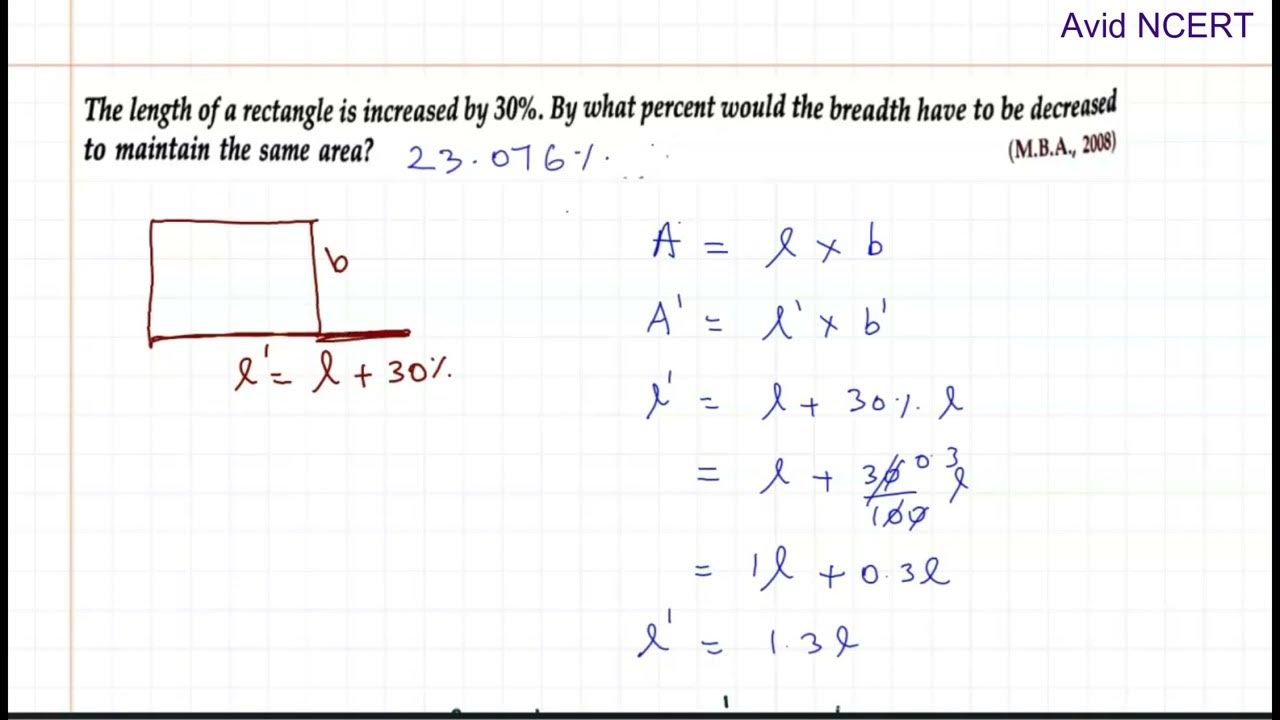 Avid NCERT
The length of a rectangle is increased by 30%. By what percent would the breadth have to be decreased
to maintain the same area? 23.076%.
(M.B.A., 2008)
b
l' = l + 30%.
A = l × b
A' = l' × b'
l' = l + 30%. l
= l + 30/100 0.3 l
= 1l + 0.3l
l' = 1.3l